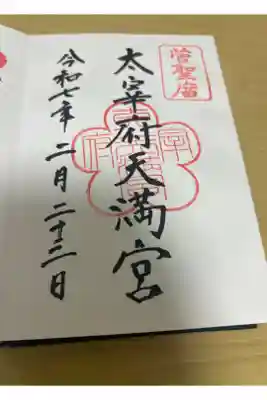 菅聖庿
太宰府天満宮
令和七年 二月 二十三日